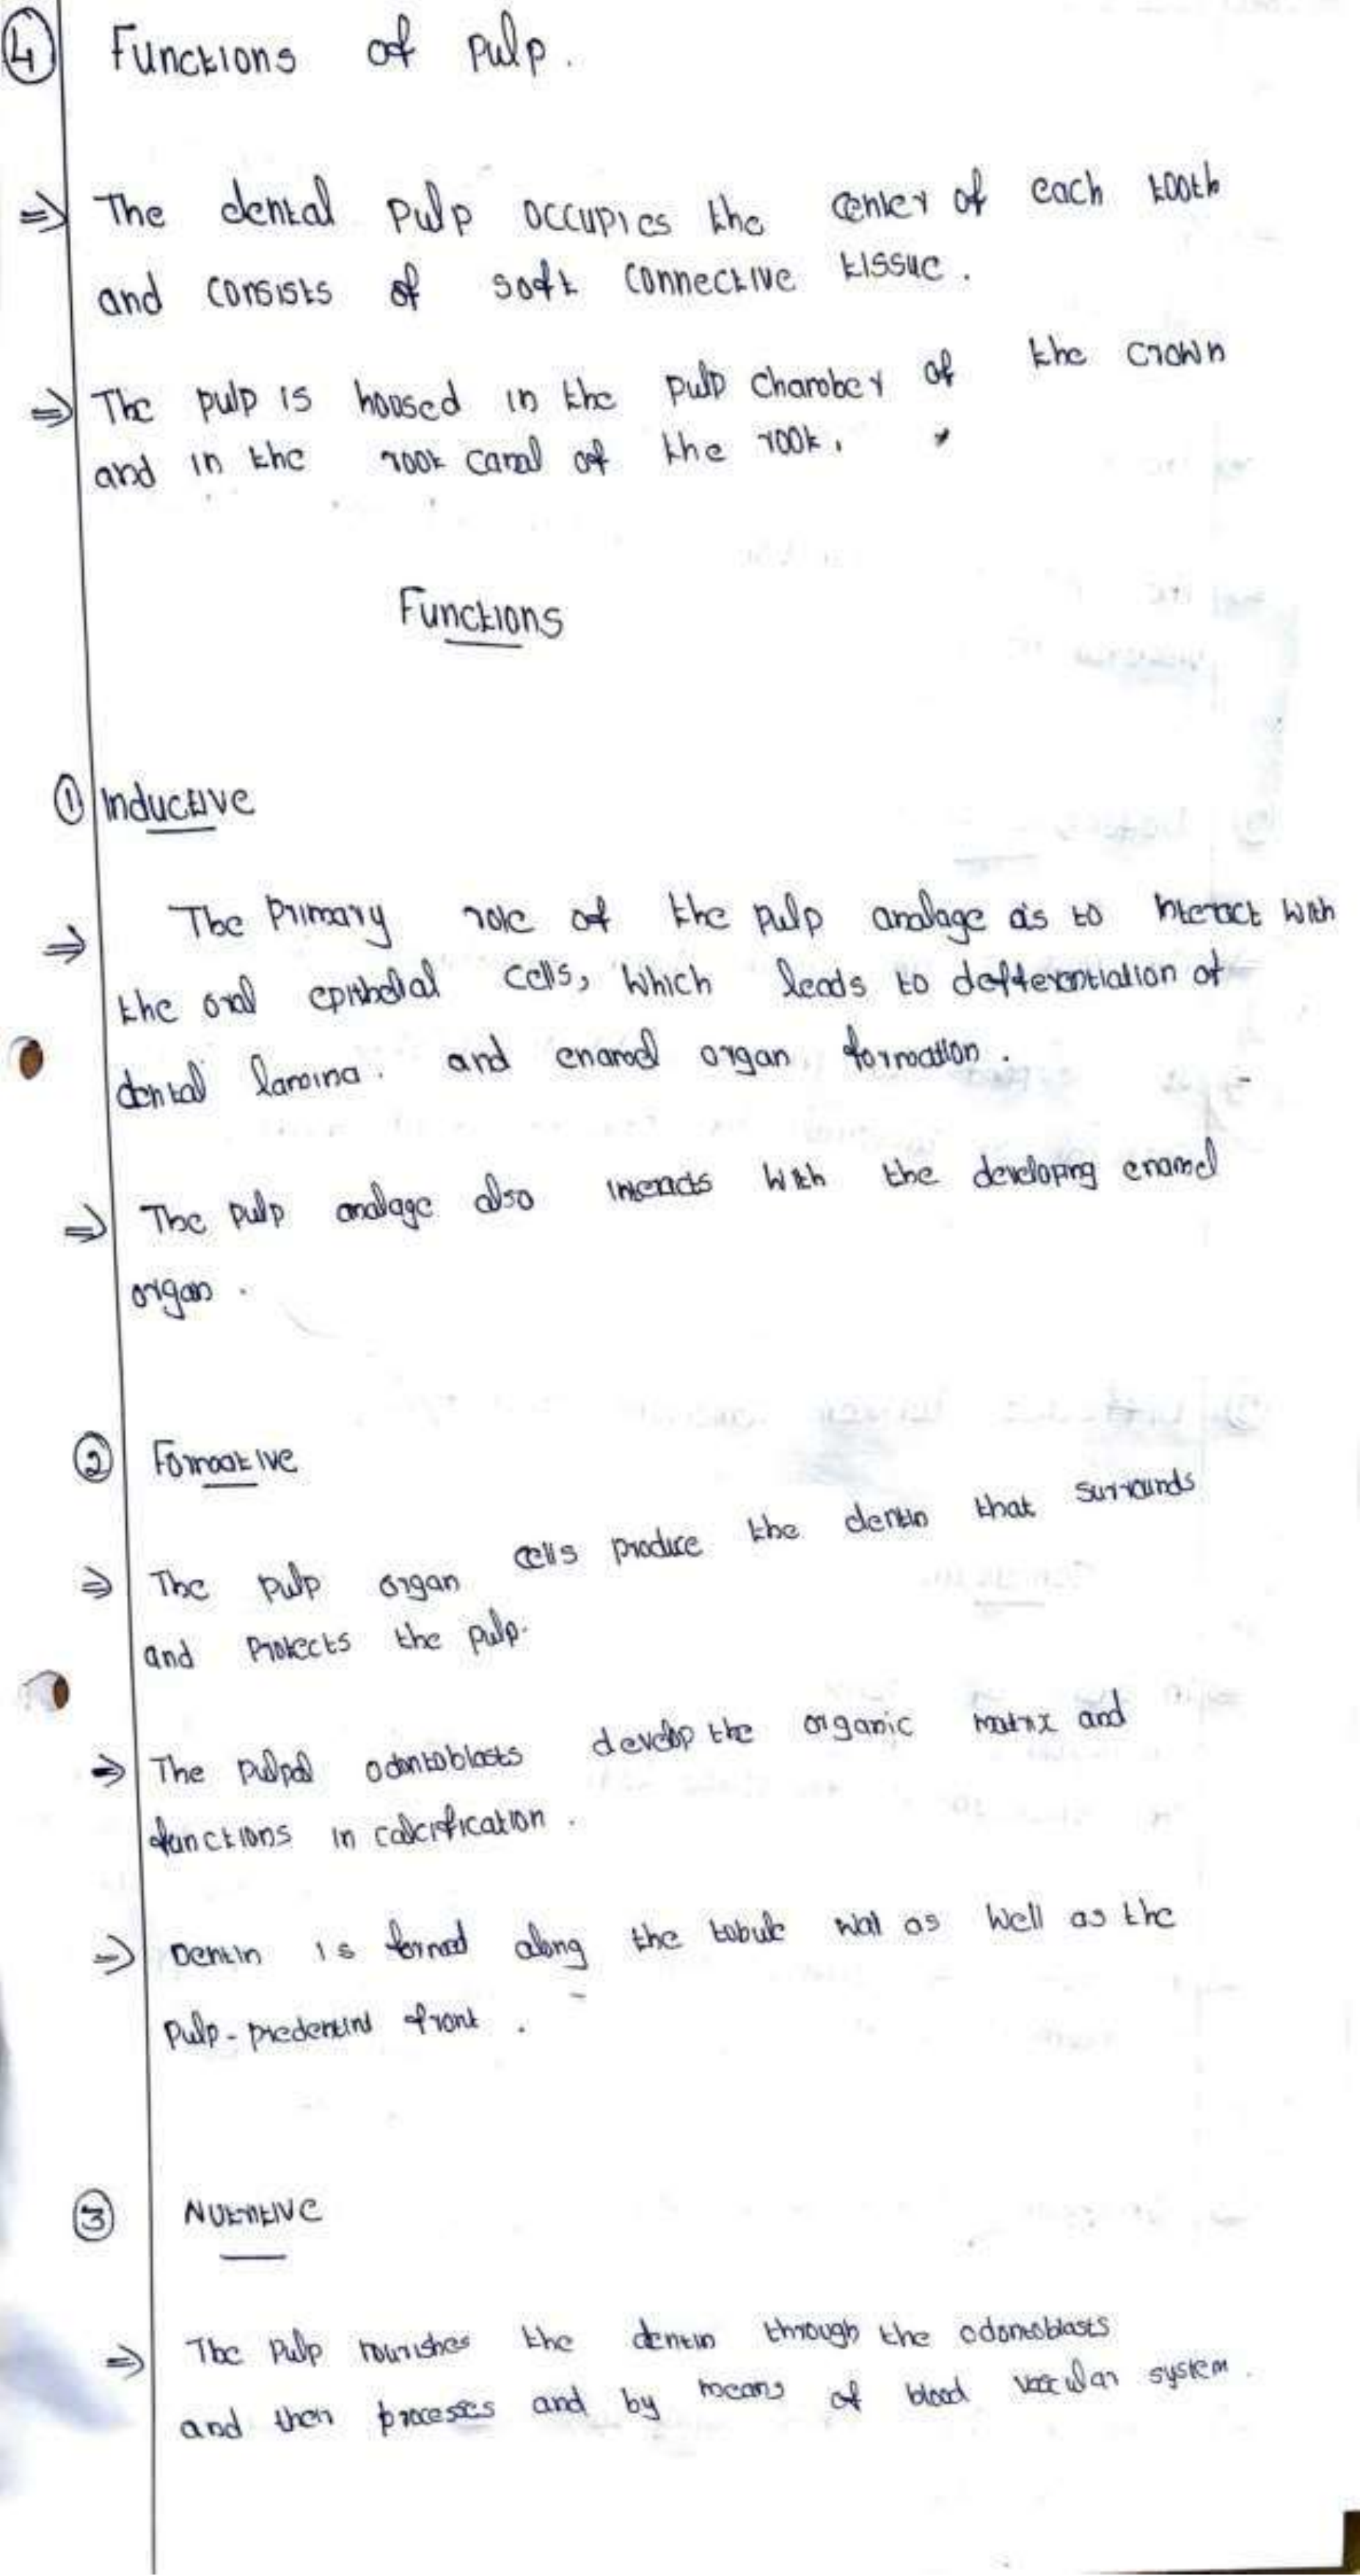 4 Functions of pulp.
⇒ The dental pulp occupies the center of each tooth
and consists of soft connective tissue.
⇒ The pulp is housed in the pulp chamber of the crown
and in the root canal of the root.
Functions
① Inductive
⇒ The primary role of the pulp analage is to interact with
the oral epithelial cells, which leads to defferentiation of
dental lamina. and enamel organ formation.
⇒ The pulp analage also interacts with the developing enamel
organ.
② Formative
⇒ The pulp organ cells produce the dentin that surrounds
and protects the pulp.
⇒ The pulpal odontoblasts develop the organic matrix and
functions in calcification.
⇒ Dentin is formed along the tubule wal as well as the
pulp-predentin front.
③ Nutritive
⇒ The pulp nourishes the dentin through the odontoblasts
and then processes and by means of blood vascular system.